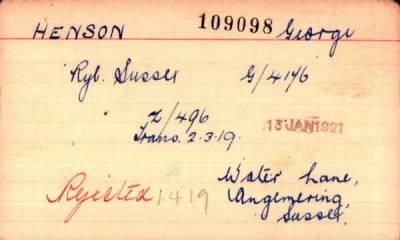 HENSON 109098 George
Ryl. Sussex G/4176
Z/496
Trans. 2.3.19.
13 JAN 1921
Water Lane,
Rejected 1 4 19
Angmering,
Sussex.